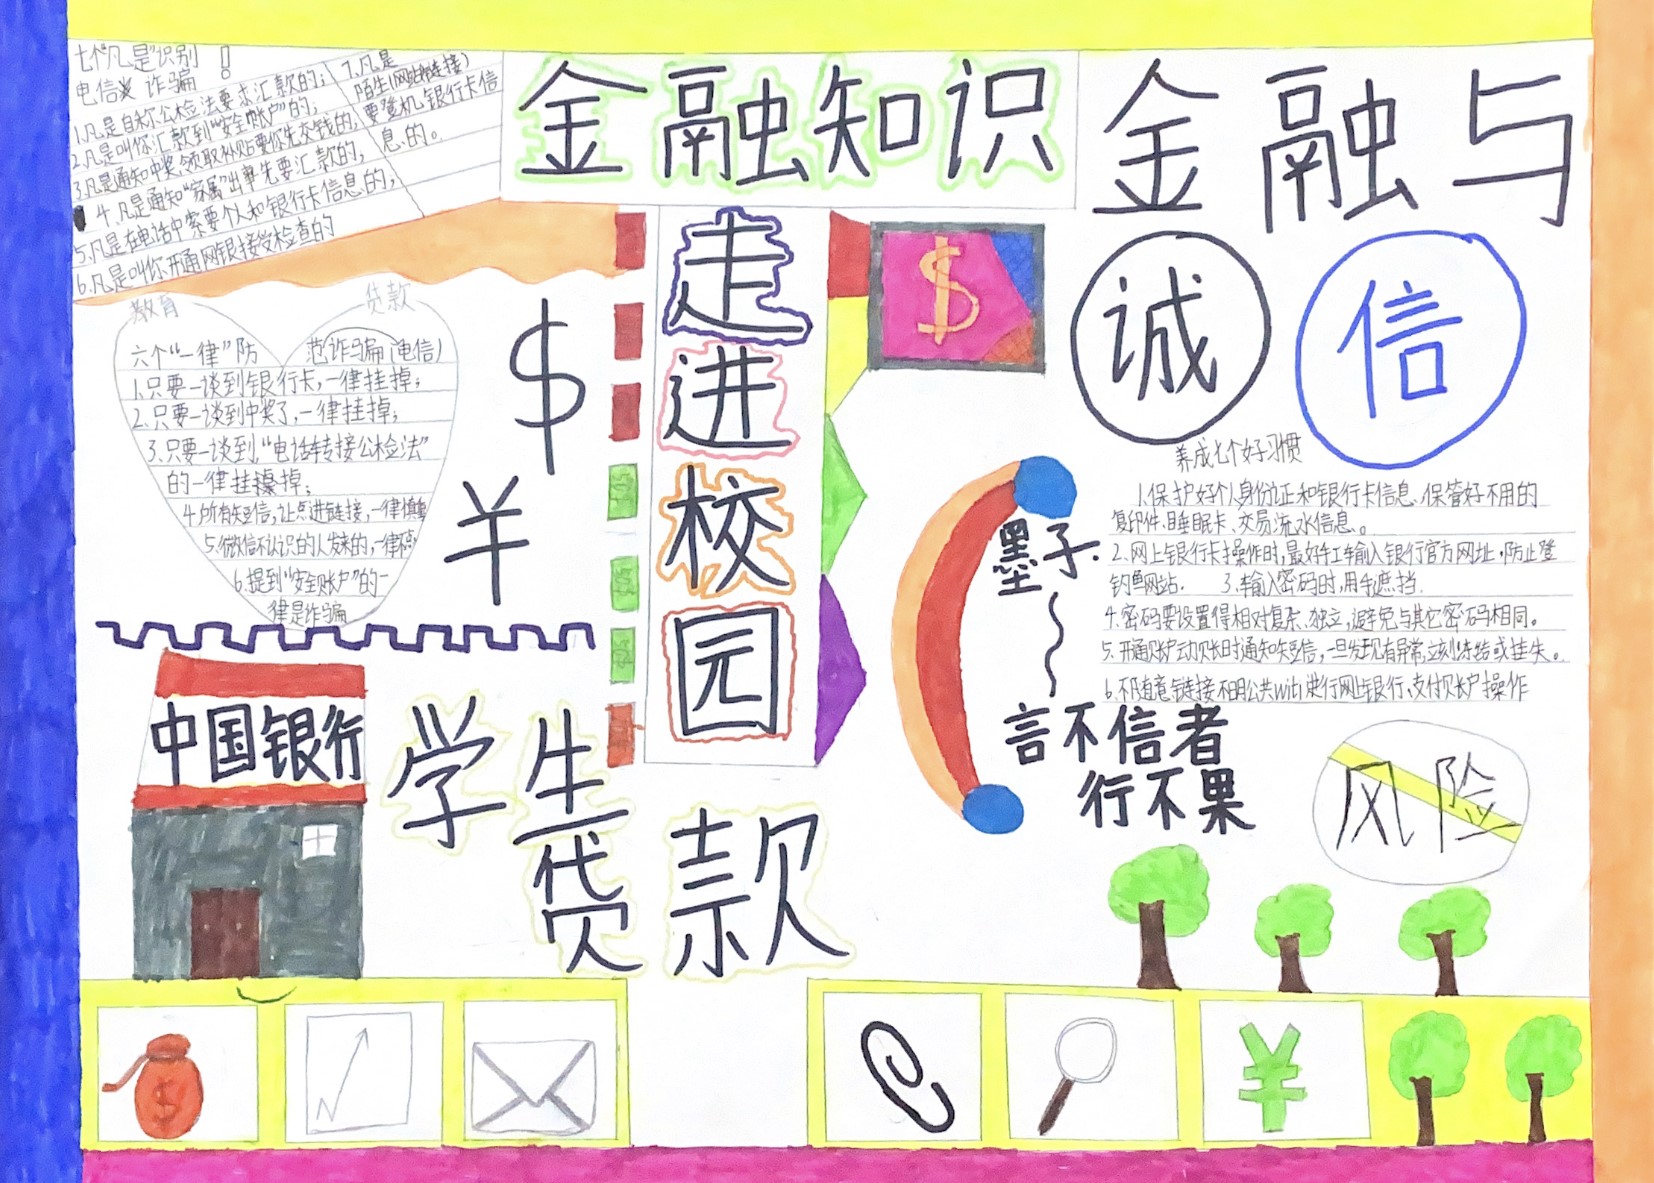 七个"凡是"识别！
电信 诈骗
1.凡是自称公检法要求汇款的；
2.凡是叫你汇款到"安全帐户"的；
3.凡是通知中奖、领取补贴要你先交钱的，
4.凡是通知"家属"出事先要汇款的，
5.凡是在电话中索要个人和银行卡信息的，
6.凡是叫你开通网银接受检查的
7.凡是
陌生(网站链接)
要登机银行卡信
息的。
金融知识
走进校园
金融与
诚信
教育 贷款
六个"一律"防 范诈骗(电信)
1.只要一谈到银行卡，一律挂掉；
2.只要一谈到中奖了，一律挂掉；
3.只要一谈到"电话转接公检法"
的一律挂掉；
4.所有短信，让点进链接，一律
5.微信不认识的人发来的，一律
6.提到"安全账户"的一
律是诈骗
$
¥
$
养成七个好习惯
1.保护好个人身份证和银行卡信息、保管好不用的
复印件、睡眠卡、交易流水信息。
2.网上银行卡操作时，最好手工输入银行官方网址，防止登
钓鱼网站． 3.输入密码时，用手遮挡．
4.密码要设置得相对复杂、独立，避免与其它密码相同。
5.开通账户动账时通知短信，一旦发现有异常，立刻冻结或挂失。
6.不随意链接不明公共wifi进行网上银行、支付账户操作
墨子：
言不信者
行不果
风险
中国银行
学生
贷款
$
¥